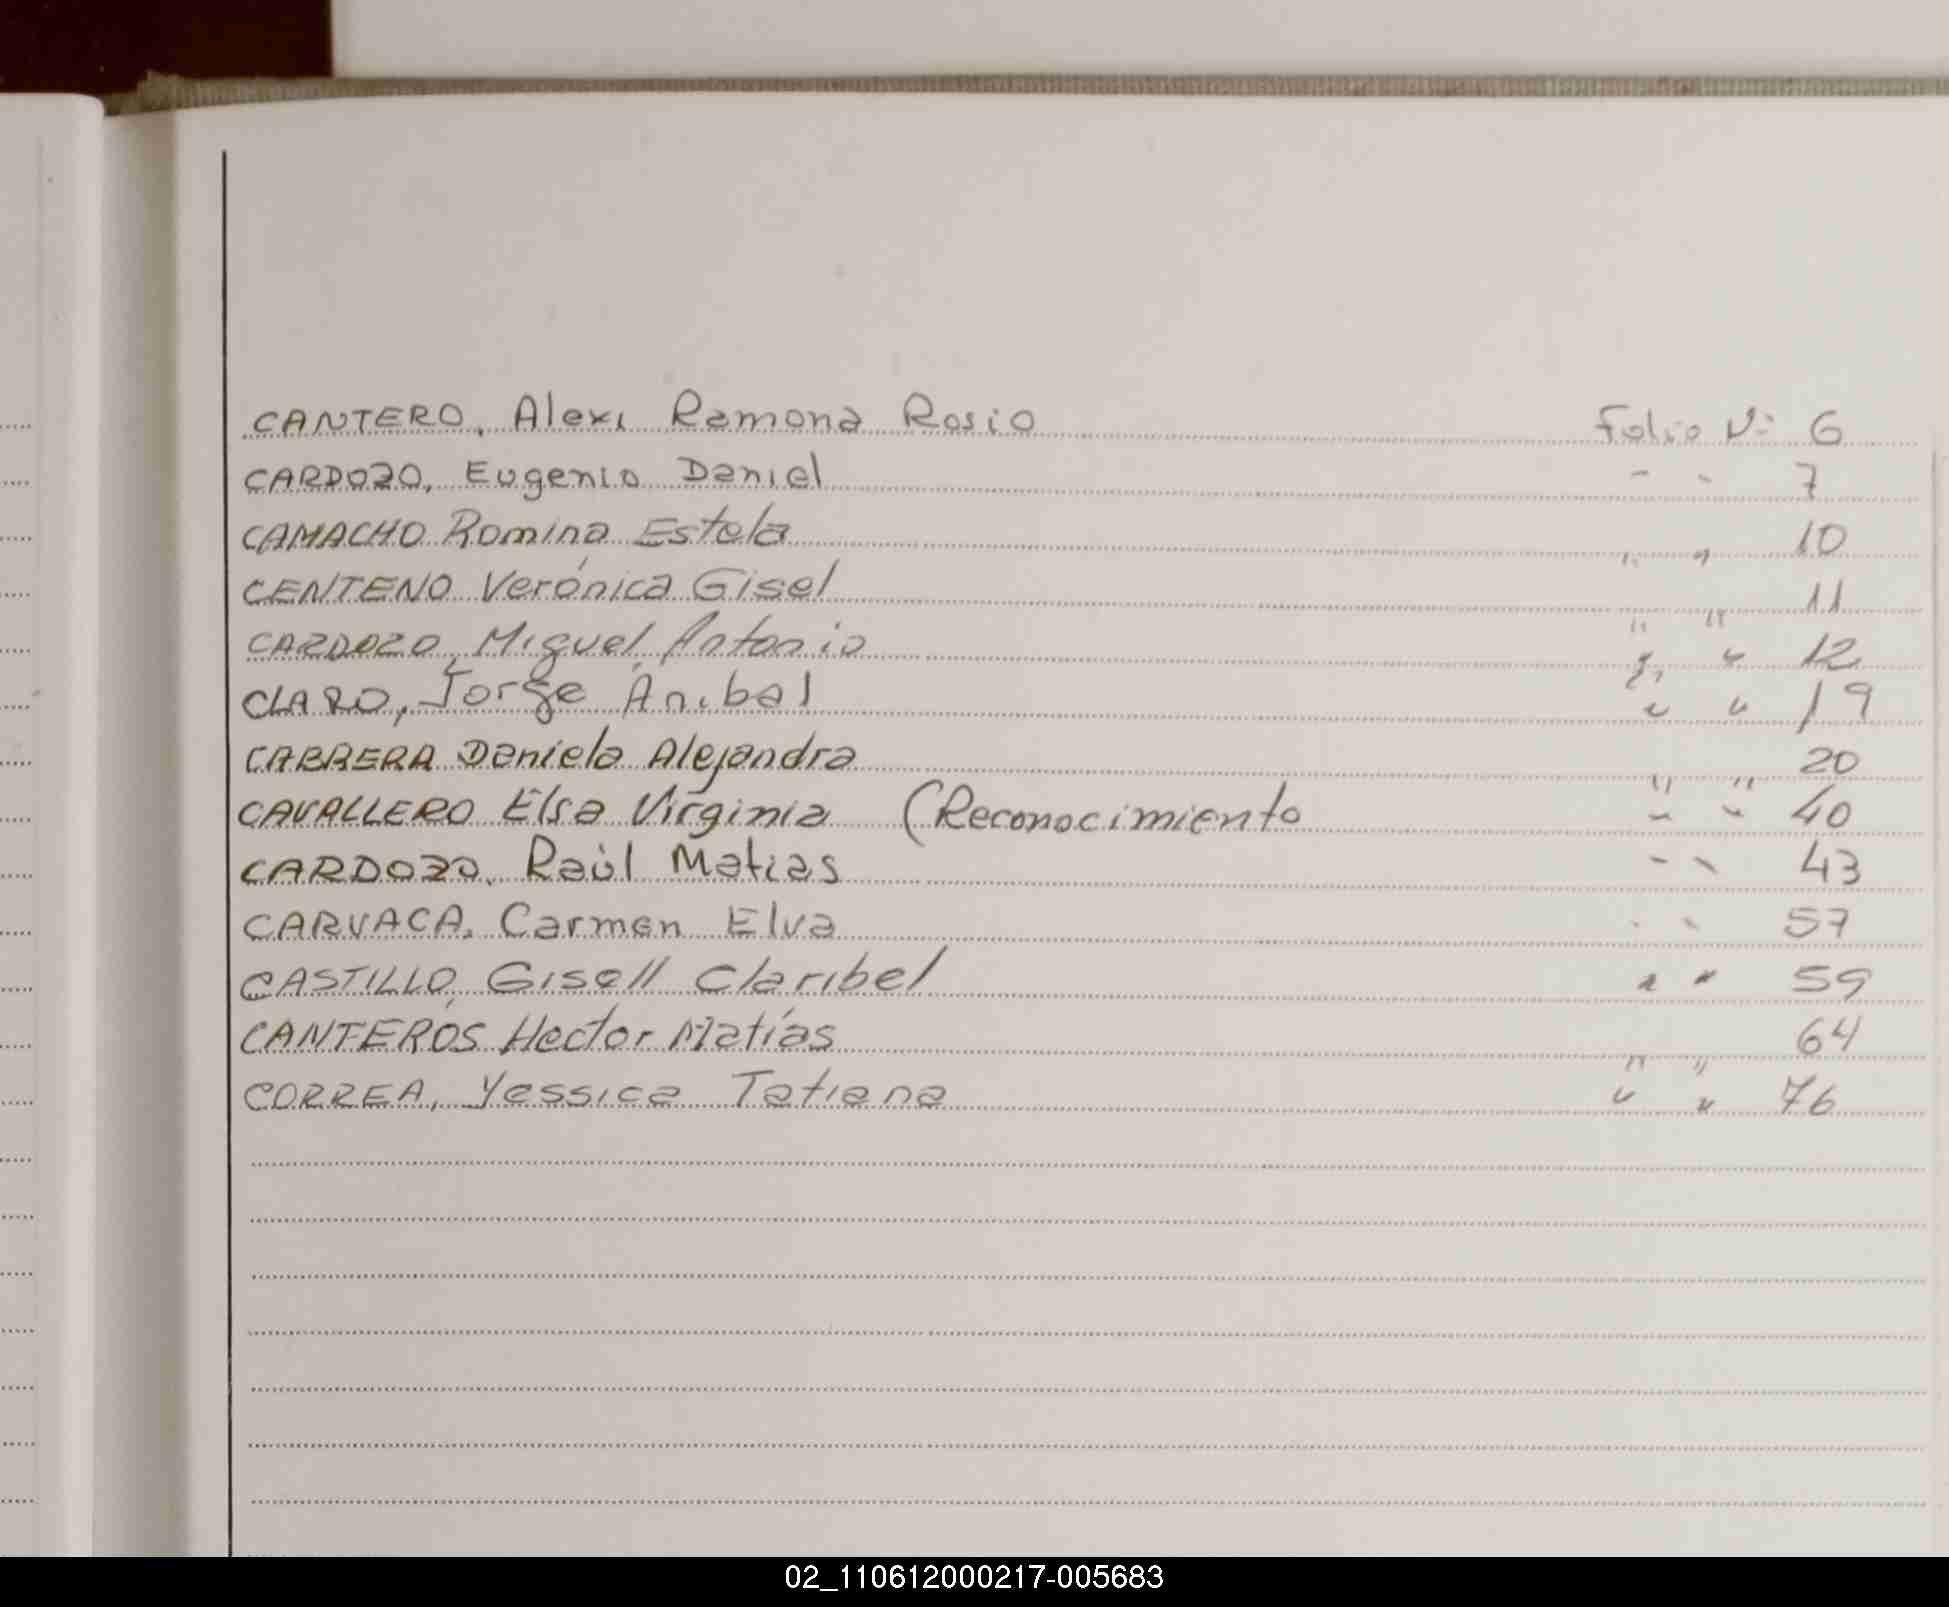 CANTERO, Alexi Ramona Rosio Folio Nº 6
CARDOZO, Eugenio Daniel - - 7
CAMACHO Romina Estela " " 10
CENTENO Verónica Gisel " " 11
CARDOZO, Miguel Antonio " " 12
CLARO, Jorge Anibal " " 19
CABRERA Daniela Alejandra " " 20
CAVALLERO Elsa Virginia (Reconocimiento - - 40
CARDOZO, Raúl Matias - - 43
CARVACA, Carmen Elva - - 57
CASTILLO, Gisell Claribel " " 59
CANTEROS Hector Matías " " 64
CORREA, Yessica Tatiana " " 76
02_110612000217-005683